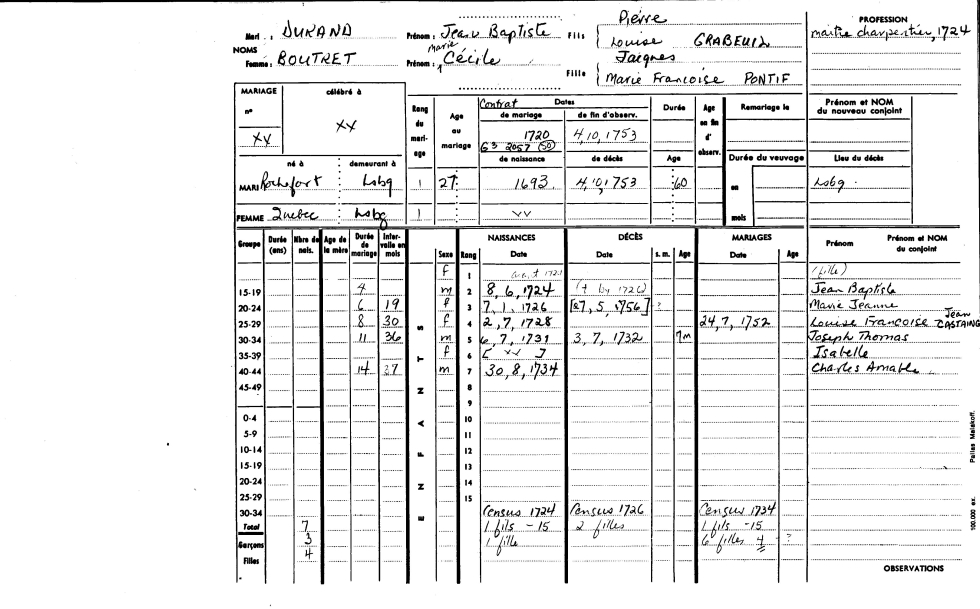 Mari : DURAND Prénom : Jean Baptiste Fils Pierre
Louise GRABEUIL
NOMS
Femme : BOUTRET Prénom : marie Cécile Fille Jacques
Marie Francoise PONTIF
PROFESSION
maitre charpentier, 1724
MARIAGE célébré à
n°
XX XX
né à demeurant à
MARI Rochefort Lsbg
FEMME Quebec Lsbg
Rang du mari-age
Age au mariage
Contrat Dates
de mariage de fin d'observ.
1720 4,10,1753
G3 2057 (50)
de naissance de décès
1 27 1693 4,10,1753
1 vv
Durée
Age
60
Age en fin d' observ.
Remariage le
Durée du veuvage
en
mois
Prénom et NOM
du nouveau conjoint
Lieu du décès
Lsbg.
Groupe Durée (ans) Nbre de nais. Age de la mère Durée de mariage Inter-valle en mois
E N F A N T S
Sexe Rang NAISSANCES Date DÉCÈS Date s. m. Age MARIAGES Date Age Prénom Prénom et NOM du conjoint
f 1 1721 (fille)
15-19 4 m 2 8,6,1724 (+ by 1726) Jean Baptiste
20-24 6 19 f 3 7,1,1726 [27,5,1756] ? Marie Jeanne
25-29 8 30 f 4 2,7,1728 24,7,1752 Louise Francoise Jean CASTAING
30-34 11 36 m 5 6,7,1731 3,7,1732 7m Joseph Thomas
35-39 f 6 [vv] Isabelle
40-44 14 37 m 7 30,8,1734 Charles Amable
45-49 8
9
0-4 10
5-9 11
10-14 12
15-19 13
20-24 14
25-29 15
30-34 Census 1724 Census 1726 Census 1734
Total 7 1 fils -15 2 filles 1 fils -15
Garçons 3 1 fille 6 filles 4 ?
Filles 4
OBSERVATIONS
100.000 ex. Pallas Malakoff.